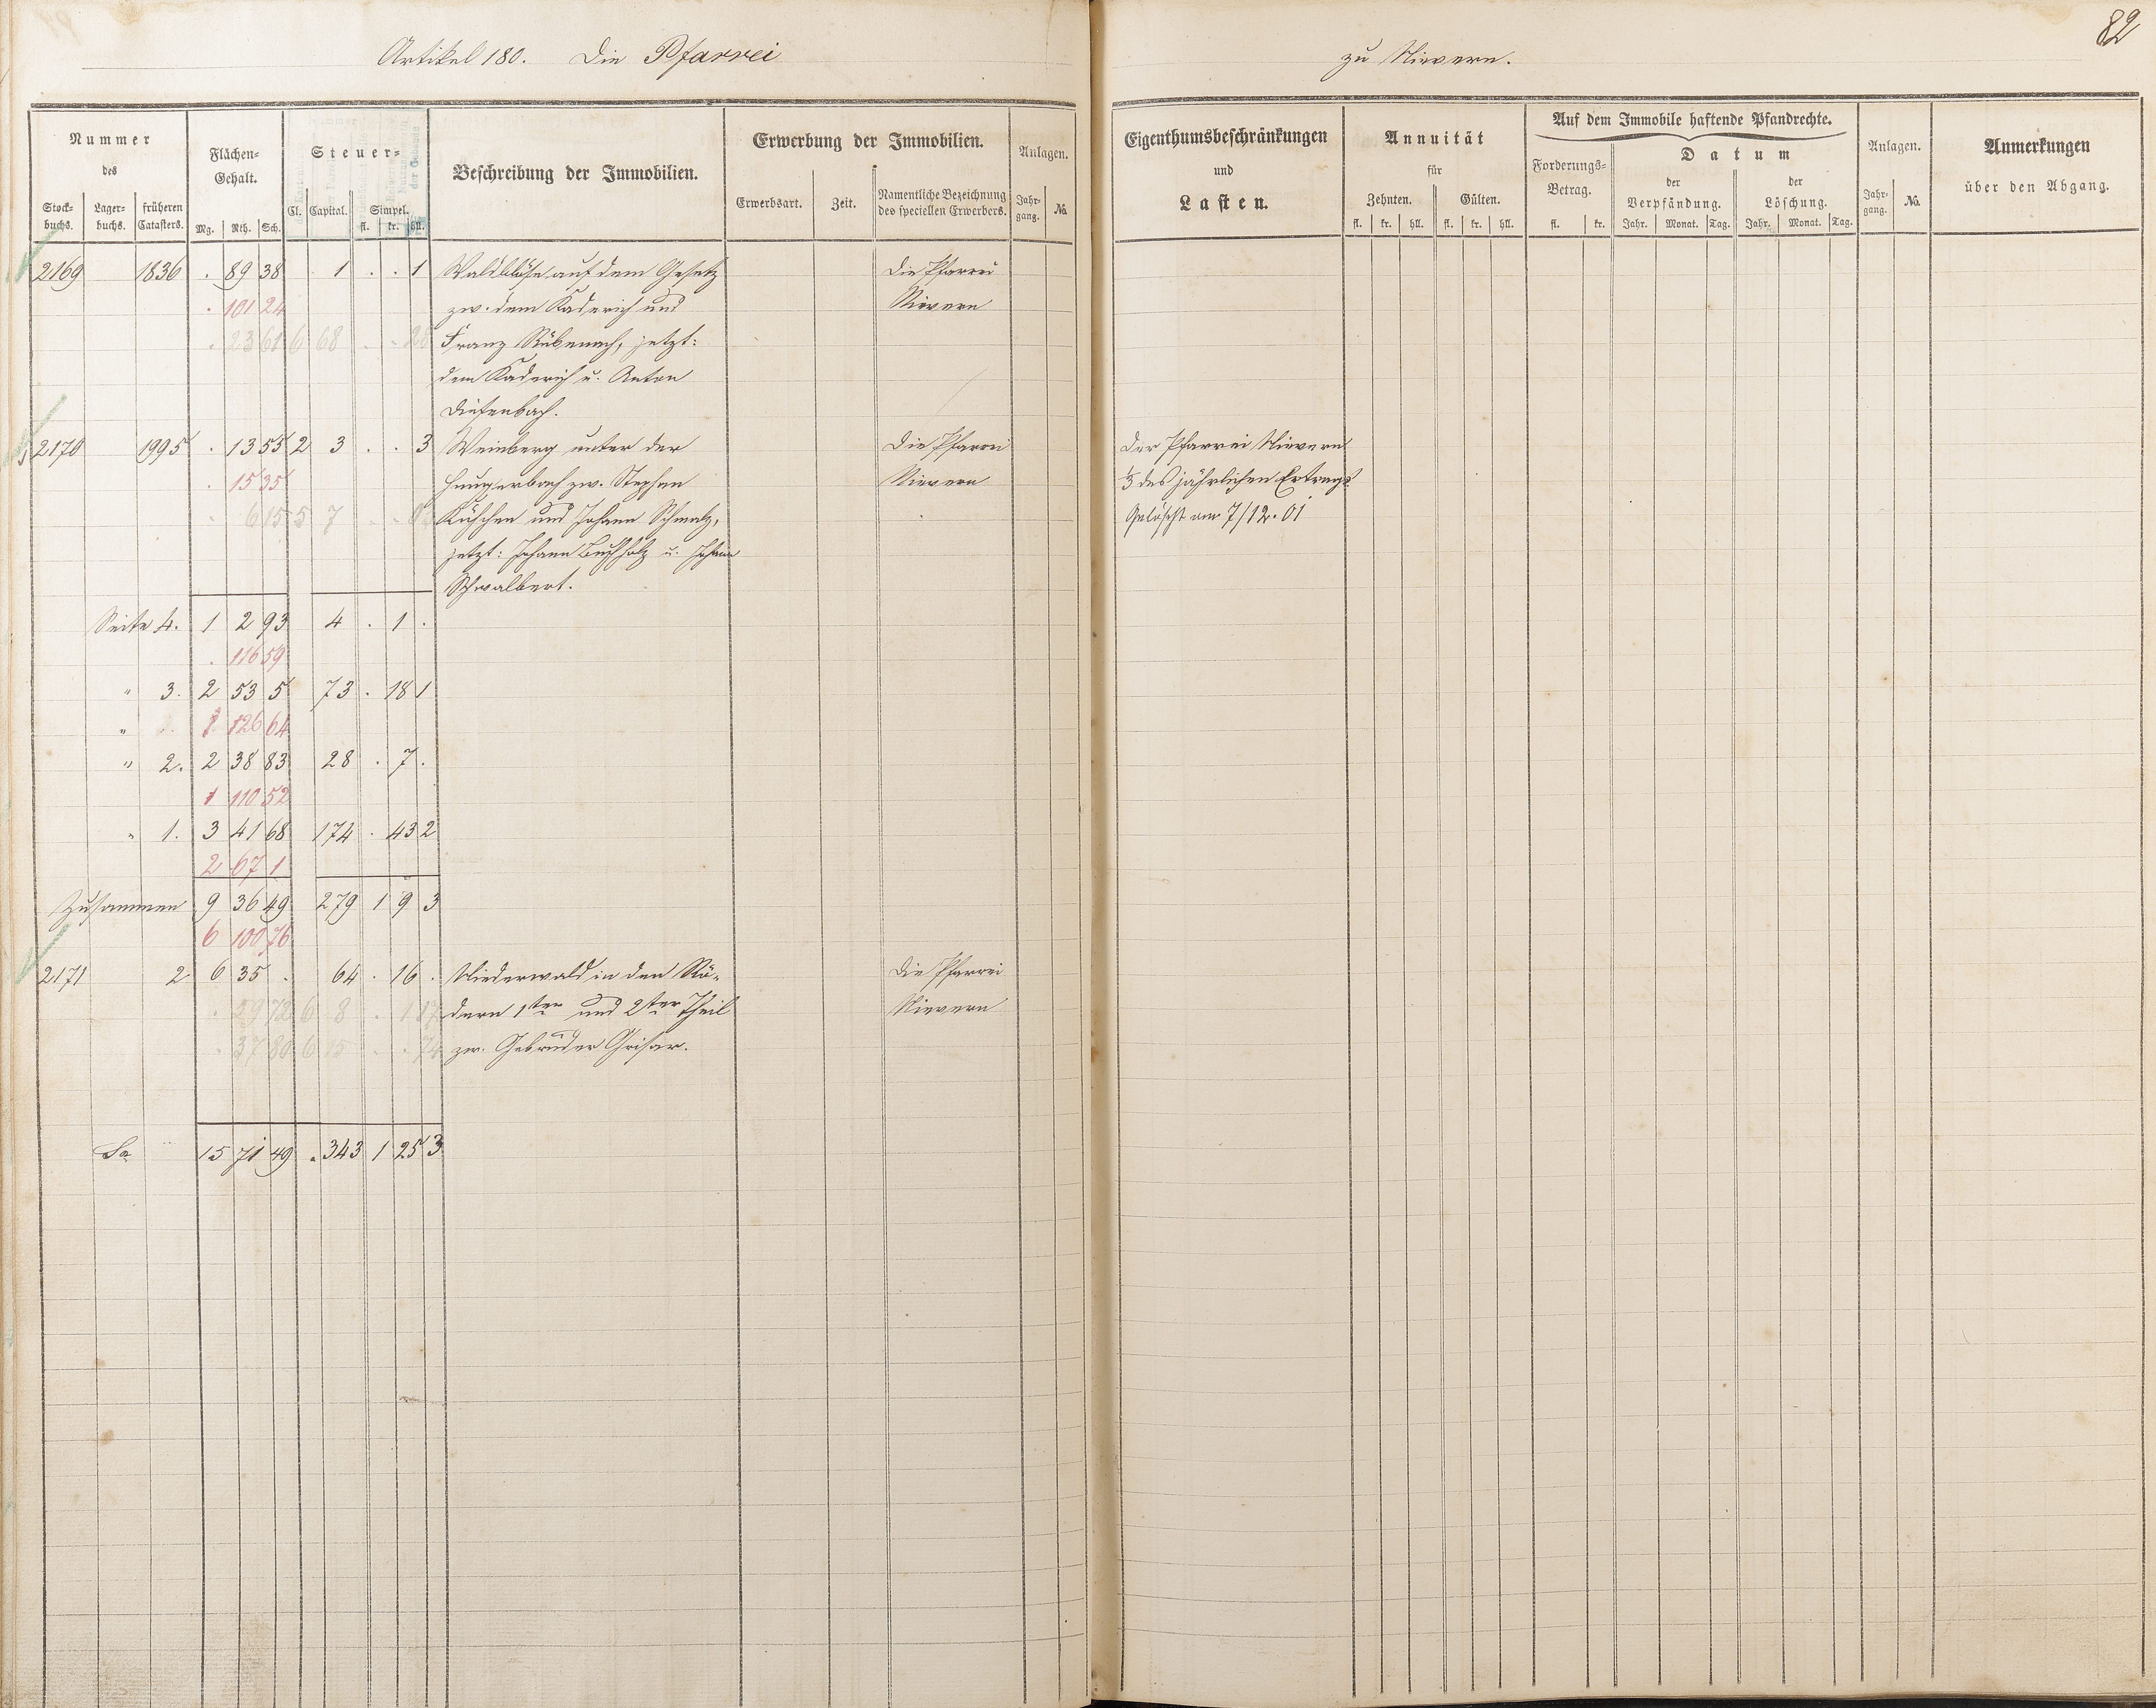 82
Artikel 180. Die Pfarrei zu Nievern.
Nummer des
Stock-buchs. Lager-buchs. früheren Catasters.
Flächen-Gehalt.
Mg. Rth. Sch.
Steuer-
Cl. Capital. Simpel.
fl. kr. hll.
Beschreibung der Immobilien.
Erwerbung der Immobilien.
Erwerbsart. Zeit. Namentliche Bezeichnung des speciellen Erwerbers.
Anlagen.
Jahr-gang. No.
Eigenthumsbeschränkungen
und
Lasten.
Annuität
für
Zehnten. Gülten.
fl. kr. hll. fl. kr. hll.
Auf dem Immobile haftende Pfandrechte.
Forderungs-Betrag.
fl. kr.
Datum
der Verpfändung. der Löschung.
Jahr. Monat. Tag. Jahr. Monat. Tag.
Anlagen.
Jahr-gang. No.
Anmerkungen
über den Abgang.
2169 1836 . 89 38 1 . . 1 Waldblöse auf dem Gesetz Die Pfarrei
. 101 24 zw. dem Kaderich und Nievern
. 23 61 6 68 . . 28 Franz Rübenach, jetzt:
dem Kaderich u. Anton
Diefenbach.
2170 1995 . 13 55 2 3 . . 3 Weinberg unter der Die Pfarrei Der Pfarrei Nievern
. 15 35 Hungerbach zw. Stephan Nievern 1/3 des jährlichen Ertrags
. 6 15 5 7 und Johann Schmalz, Gelöscht am 7/12. 01
jetzt: Johann Buchholz u. Johann
Schwalbert.
Seite 4. 1 2 93 4 . 1 .
. 116 59
" 3. 2 53 5 73 . 18 1
" 1 126 64
" 2. 2 38 83 28 . 7 .
1 110 52
" 1. 3 41 68 174 . 43 2
2 67 1
Zusammen 9 36 49 279 1 9 3
6 100 76
2171 2 6 35 . 64 . 16 . Niederwald in den Rö- Die Pfarrei
. 59 72 6 8 . 1 87 dern 1ter und 2ter Theil Nievern
. 37 80 6 15 . . 74 zw. Gebrüder Grisar.
Sa 15 71 49 . 343 1 25 3